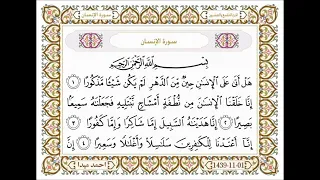 سورة الإنسان
سورة الإنسان
بِسْمِ اللَّهِ الرَّحْمَٰنِ الرَّحِيمِ
هَلْ أَتَىٰ عَلَى الْإِنسَٰنِ حِينٌ مِّنَ الدَّهْرِ لَمْ يَكُن شَيْـًٔا مَّذْكُورًا ١
إِنَّا خَلَقْنَا الْإِنسَٰنَ مِن نُّطْفَةٍ أَمْشَاجٍ نَّبْتَلِيهِ فَجَعَلْنَٰهُ سَمِيعًۢا
بَصِيرًا ٢ إِنَّا هَدَيْنَٰهُ السَّبِيلَ إِمَّا شَاكِرًا وَإِمَّا كَفُورًا ٣
إِنَّآ أَعْتَدْنَا لِلْكَٰفِرِينَ سَلَٰسِلَا۟ وَأَغْلَٰلًا وَسَعِيرًا ٤
1439-11-01